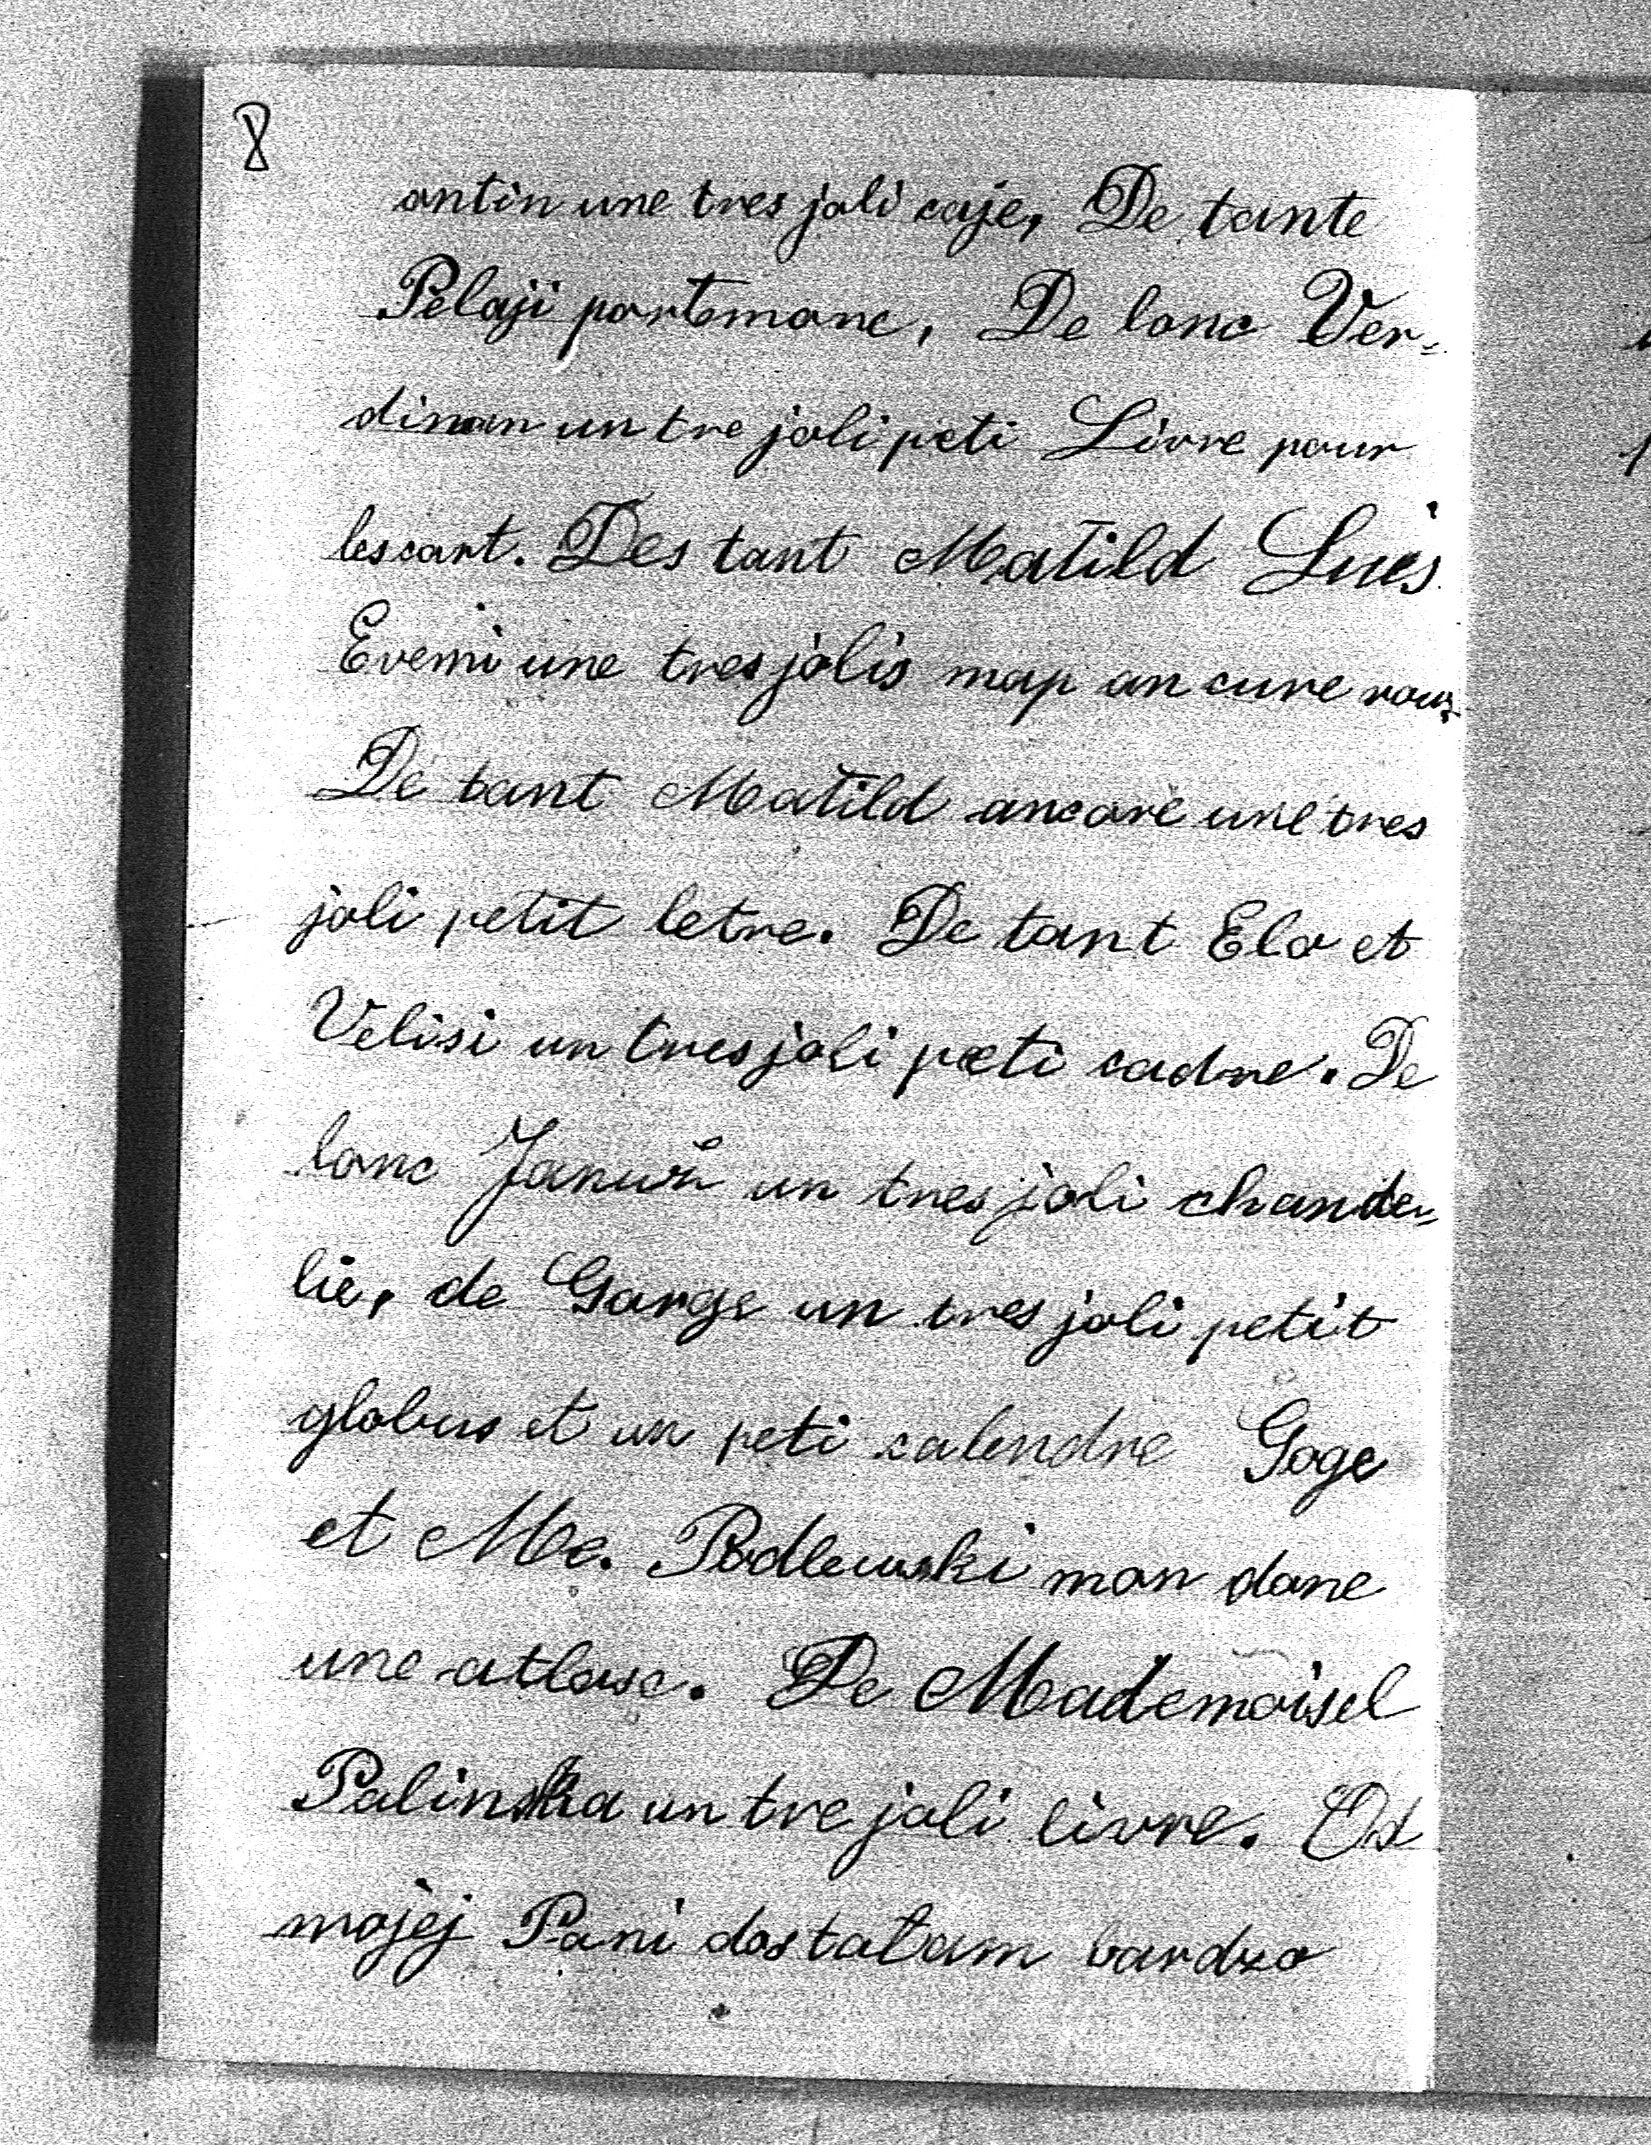 8
antin une tres joli caje, De tante
Pelaji portomone, De lonc Ver=
dinan un tre joli peti Livre pour
lescart. Des tant Matild Luis
Evemi une tres jolis map an cure rouz
De tant Matild ancore une tres
joli petit letre. De tant Ela et
Velisi un tres joli peti cadre. De
lonc Januż un tres joli chande=
lie, de Gorge un tres joli petit
globus et un peti calendre Goge
et Me. Podlewski mon done
une atlase. De Mademoisel
Palinska un tre joli livre. Od
mojej Pani dostałam bardzo